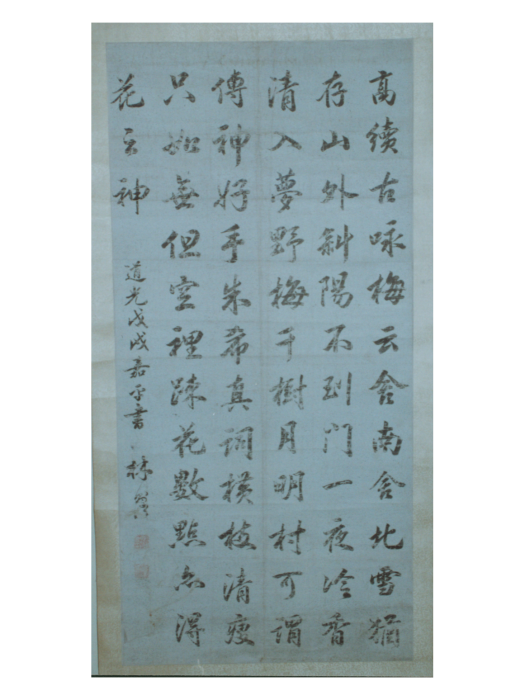 高續古咏梅云舍南舍北雪猶
存山外斜陽不到門一夜冷香
清入夢野梅千樹月明村可謂
傳神好手朱希真詞橫枝清瘦
只如無但空裡疎花數點亦得
花之神
道光戊戌嘉平書
林